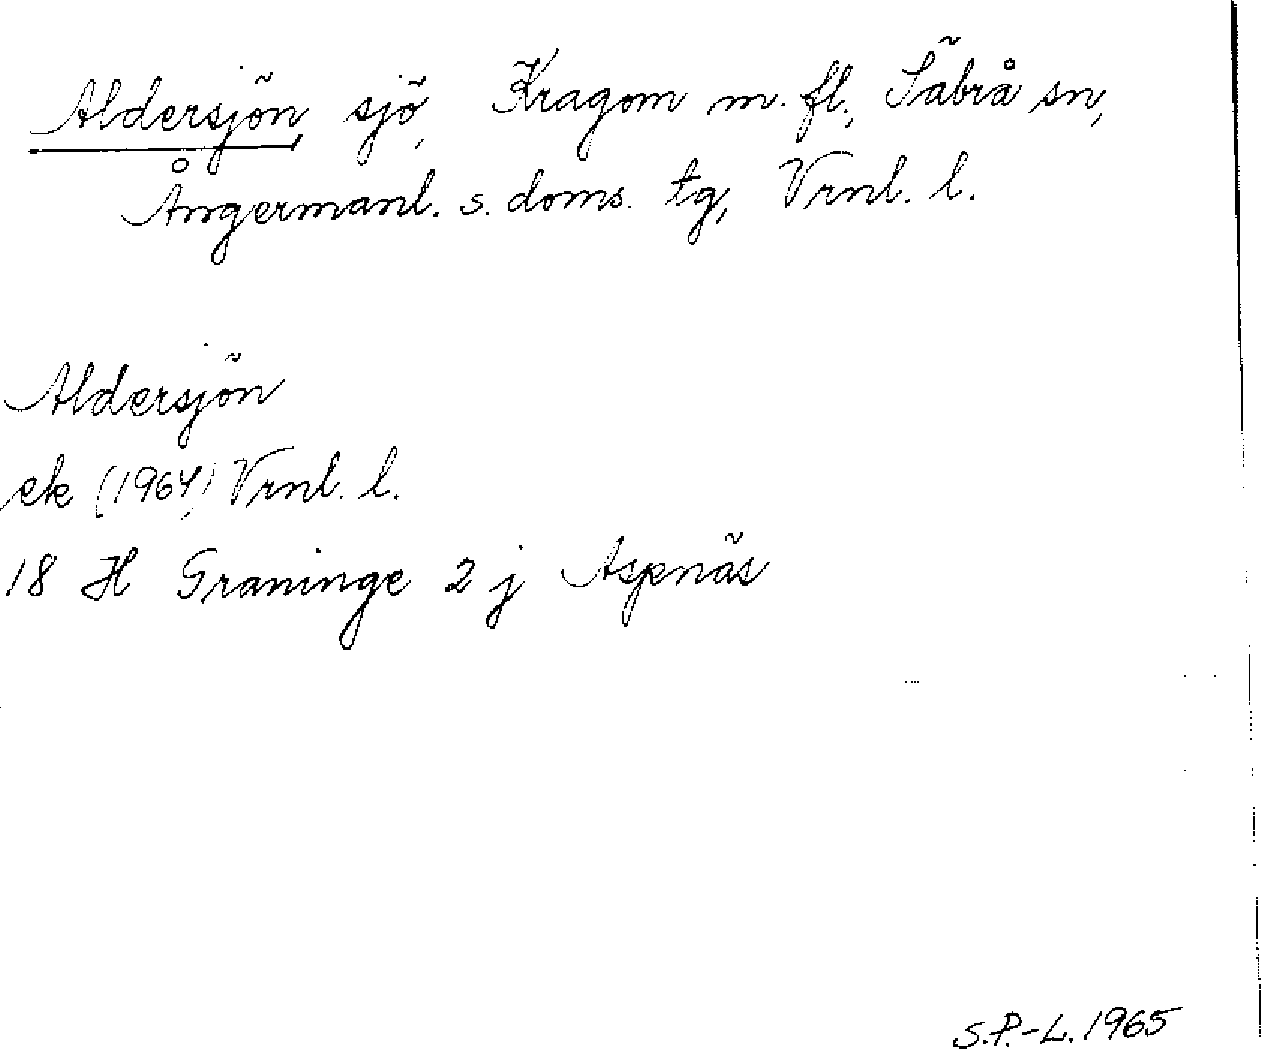 Aldersjön, sjö, Kragom m. fl., Säbrå sn,
Ångermanl. s. doms. tg, Vrnl. l.
Aldersjön
ek (1964) Vrnl. l.
18 H Graninge 2 j Aspnäs
S.P.-L. 1965